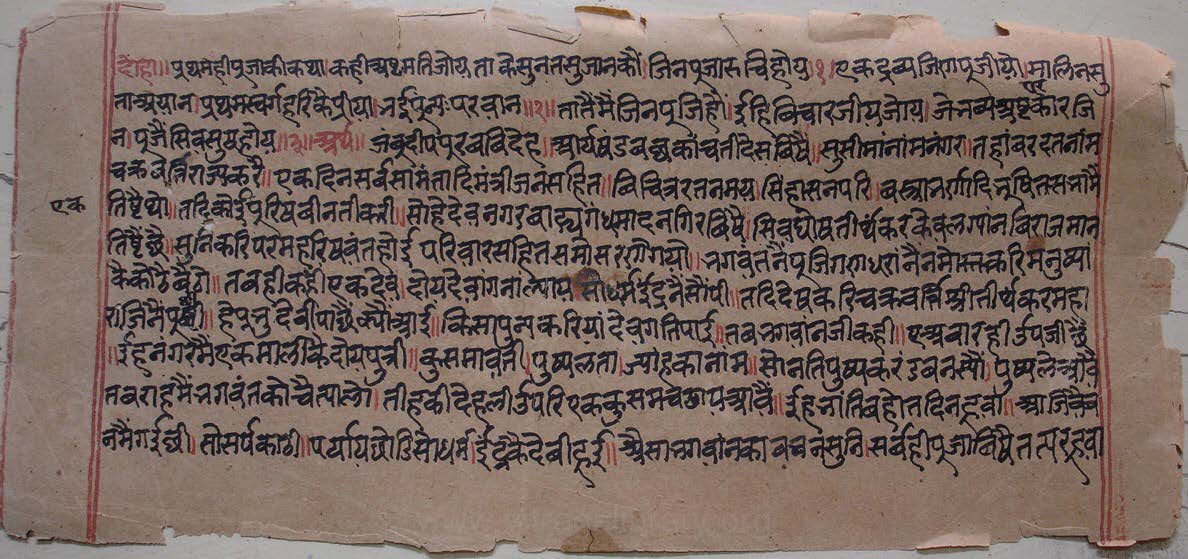 दोहा॥ प्रथमही पूजाकी कथा कही अथमति जोय ता के सुनत सुजानकौं जिनपूजारुचि होय १ एक द्रव्य जिण पूजीयो मालिनसु
ता अयान प्रथम स्वर्ग हरिकै प्रीया भई पुन्य परवान ॥२॥ तातैं मैं जिन पूजिहौं ईहि विचार जीय जोय जे नव्य अष्ट प्रकार जि
न पूजै सिवसुष होय ॥३॥ अर्थ ॥ जंबुदीप पूरव विदेह आर्यषंड वछकांवती देस विषै सुसीमां नांम नगर तहां वरदत नांम
चक्रवर्त्ति राज्य करै एक दिन सर्व सांमंतादि मंत्रीजन सहित विचित्र रतनमय सिंहासन परि वस्त्राभर्णादि भूषित सभामैं
एक
तिष्टै थो तदि कोई पुरिष वीनती करी सो हे देव नगर बाह्य गंधमादन गिर विषै सिवघोष तीर्थंकर केवलग्यांन विराजमान
तिष्टै छै सुनि करि परम हरिषवंत होई परिवार सहित समोसरण गयो भगवंतनैं पूजि गणधरांनैं नमोस्त करि मनुष्यां
कै कोठै बैठो तब ही कहीं एक देव दोय देवांगनां ल्याय सौधर्म ईंद्रनैं सौंपी तदि देष करि चक्रवर्त्ति श्रीतीर्थंकर महा
राजिनैं पूछी हे प्रभु देवी पाछै क्यौं आई किसा पुन्य करि यां देवगति पाई तब भगवानजी कही ए अबार ही उपजी छै
॥ईह नगरमैं एक मालीकै दोय पुत्री कुसमावती पुष्पलता ज्यांहका नांम सो नति पुष्पकरंड बनस्यौं पुष्प ले आवै
तब राहमैं भगवंतको चैत्यालो तीहकी देहली उपरि एक कुसम चढाय आवैं ईह भांति बहोत दिन हूवा आजि वै ब
नमैं गई छी सो सर्प काटी पर्याय छोडि सौधर्म ईंद्रकै देवी हूई अैसा भगवांनका वचन सुनि सर्व ही पूजा विषै तत्पर हूवा